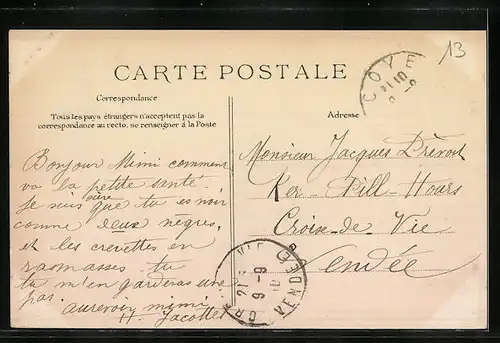 13
CARTE POSTALE
Correspondance
Tous les pays étrangers n'acceptent pas la
correspondance au recto, se renseigner à la Poste
Adresse
COYE
Bonjour Mimi comment
va la petite santé.
Je suis sûre que tu es noir
comme deux nègres,
et les crevettes en
ramasses tu
tu m'en garderas une
pas.
aurevoir mimi
H. Jacottet
Monsieur Jacques Prévost
Ker-Pill-Hours
Croix-de-Vie
Vendée
21
9-9
VENDEE